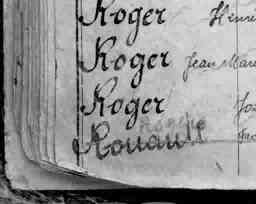 Roger Henri
Roger Jean Marie
Roger Jos
Rouault